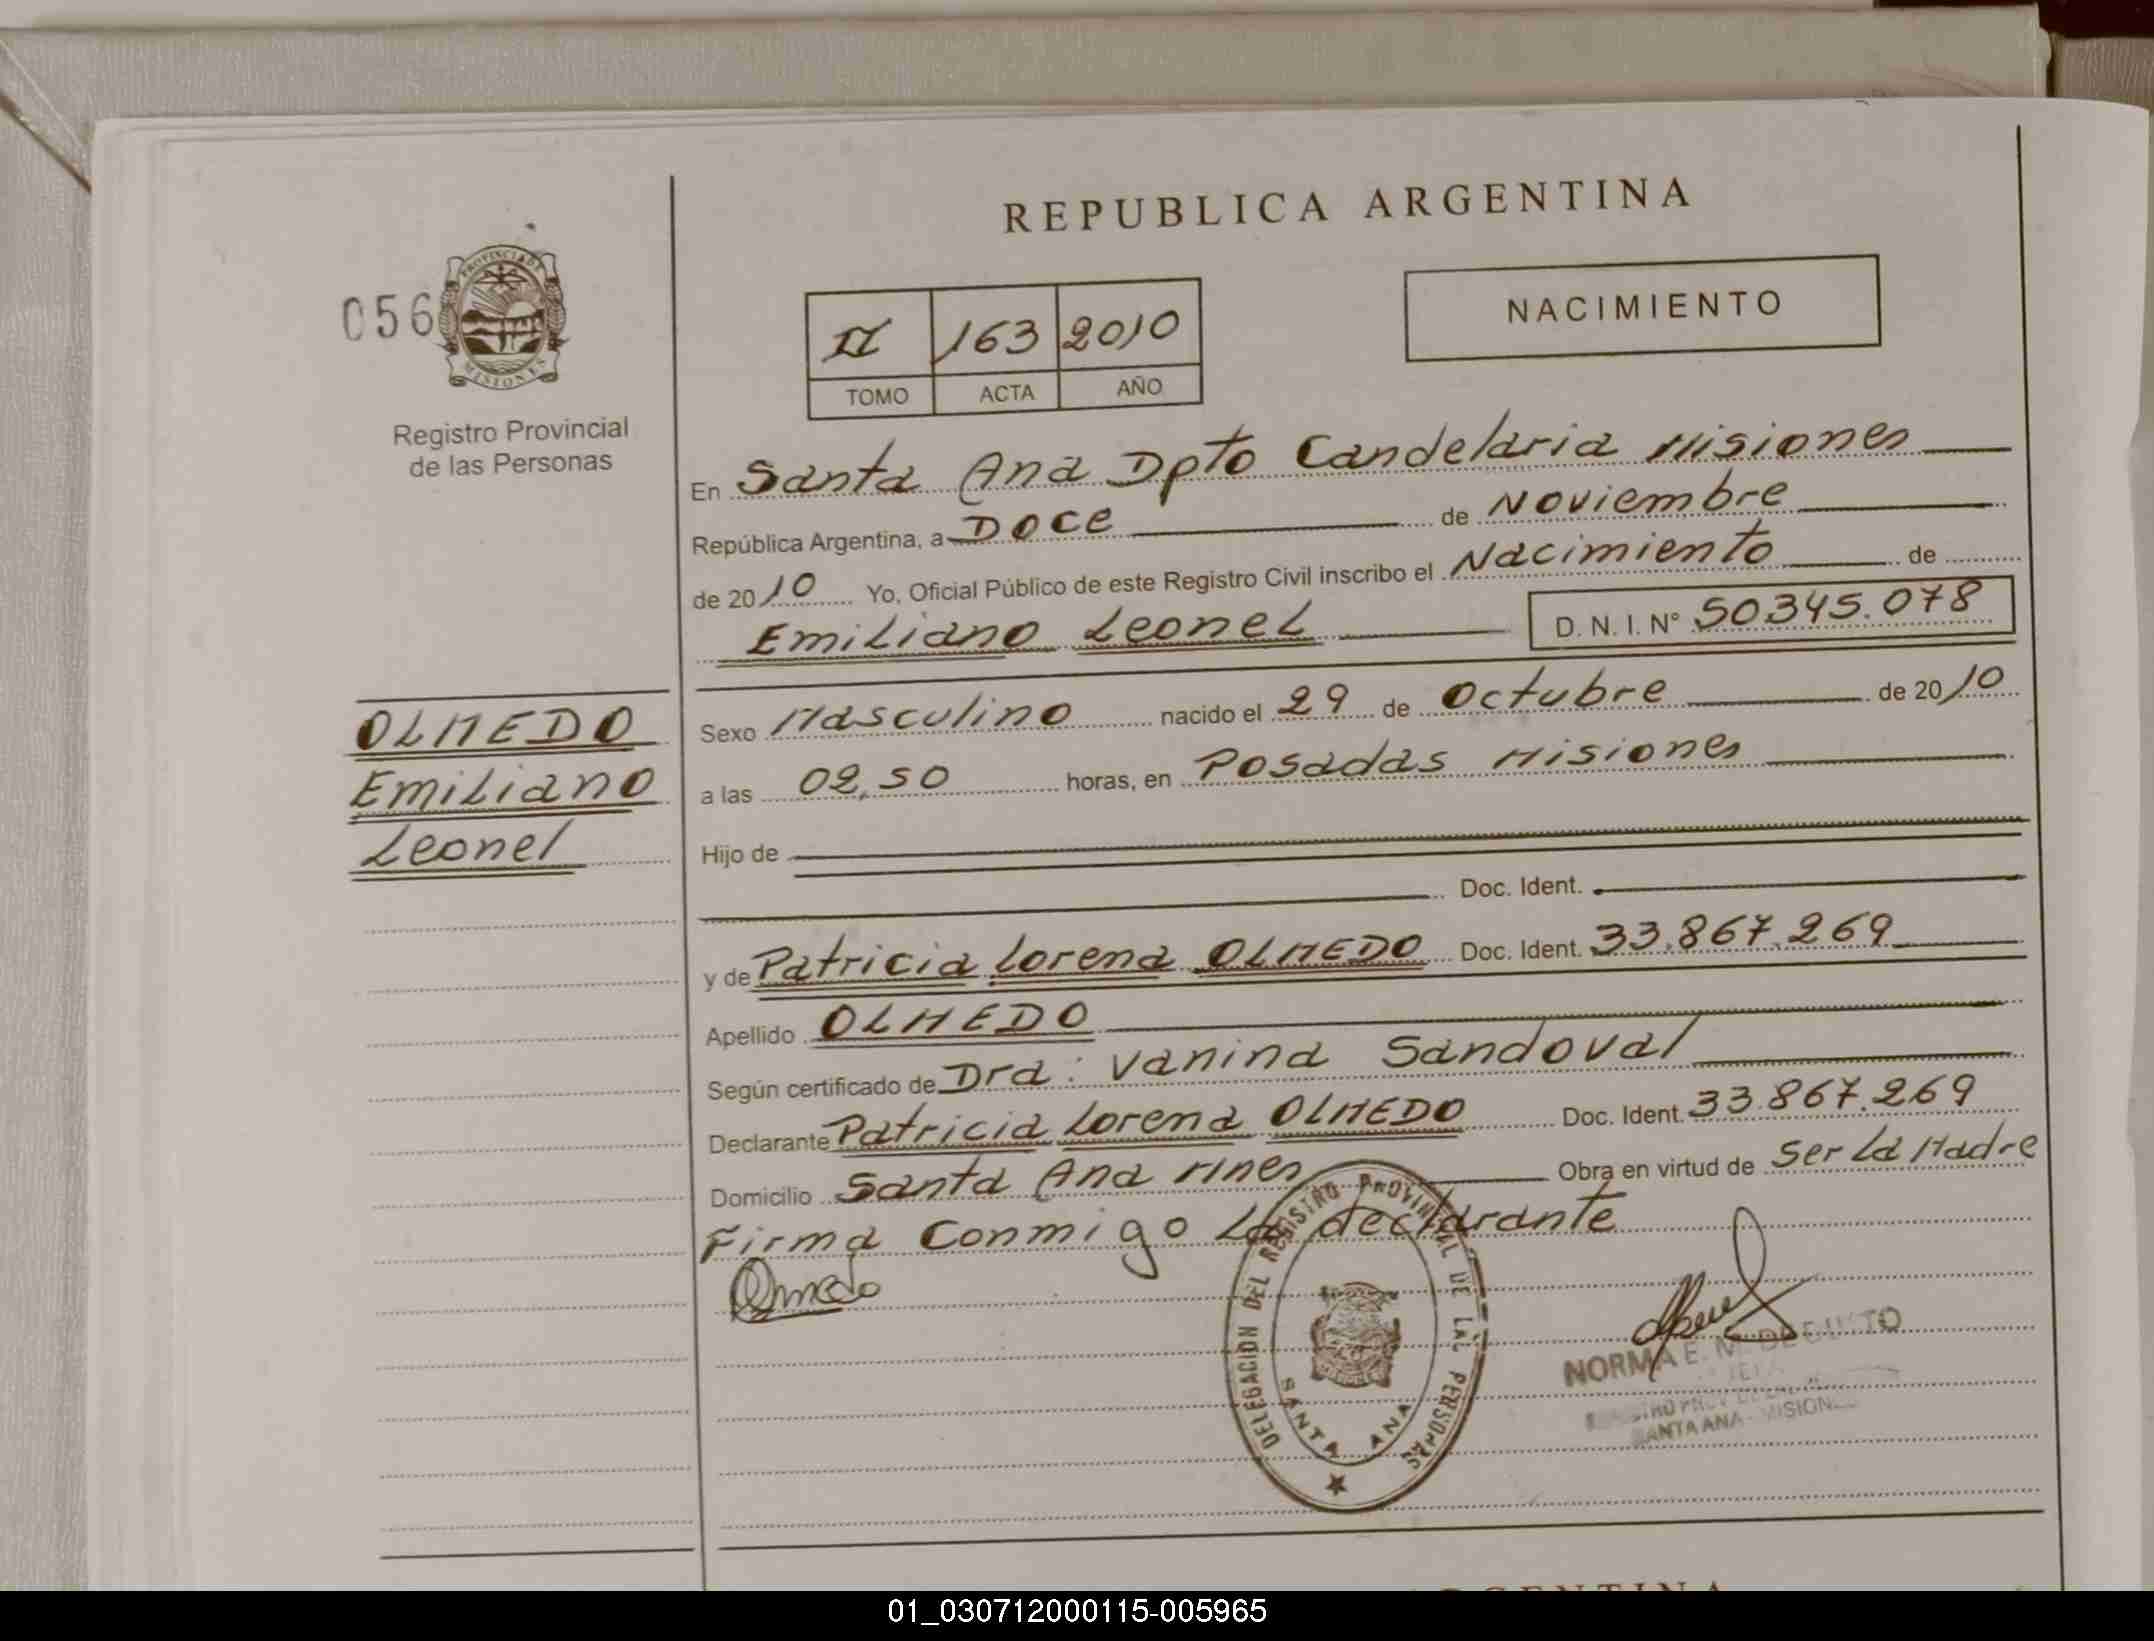 REPUBLICA ARGENTINA
056
PROVINCIA DE
MISIONES
Registro Provincial
de las Personas
II 163 2010
TOMO ACTA AÑO
NACIMIENTO
En Santa Ana Dpto Candelaria Misiones
República Argentina, a Doce de Noviembre
de 2010 Yo, Oficial Público de este Registro Civil inscribo el Nacimiento de
Emiliano Leonel D. N. I. N° 50.345.078
OLMEDO
Emiliano
Leonel
Sexo Masculino nacido el 29 de Octubre de 2010
a las 02,50 horas, en Posadas Misiones
Hijo de
Doc. Ident.
y de Patricia Lorena OLMEDO Doc. Ident. 33.867.269
Apellido OLMEDO
Según certificado de Dra: Vanina Sandoval
Declarante Patricia Lorena OLMEDO Doc. Ident. 33.867.269
Domicilio Santa Ana Mnes Obra en virtud de Ser La Madre
Firma Conmigo La declarante
Olmedo
DELEGACION DEL REGISTRO PROVINCIAL DE LAS PERSONAS
SANTA ANA
NORMA E. M. DE
SANTA ANA - MISIONES
ARGENTINA
01_030712000115-005965